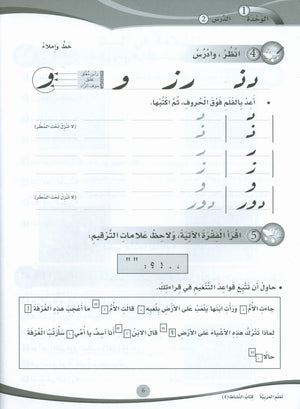 الوَحْدَة 1 الدَّرْس 2
خط وإملاء
4 اُنْظُرْ، وَادْرُسْ
د ذ ر ز و و
أَعِدْ بِالقَلَمِ فَوْقَ الحُروفِ، ثُمَّ اكْتُبْها.
ر
ز
(لا تَنْزِلْ تَحْتَ السَّطْر)
ر
ز
و
و
(لا تَنْزِلْ تَحْتَ السَّطْر)
دور
دور
5 اقْرَأ الفِقْرَةَ الآتِيَةَ، وَلاحِظْ عَلاماتِ التَّرْقيمِ:
. ، ! ؟ : " "
حاوِل أَنْ تَتَّبِعَ قَواعِدَ التَّنْغيمِ في قِراءَتِكَ.
جاءَتِ الأُمُّ وَرَأَتِ ابْنَها يَلْعَبُ عَلى الأَرْضِ بِلُعَبِهِ قالَتِ الأُمُّ ما أَعْجَبَ هذِهِ الغُرْفَةَ !
لِماذا تَتْرُكُ هذِهِ الأَشْياءَ عَلى الأَرْضِ ؟ قالَ الابْنُ أَنا آسِفٌ يا أُمّي سَأُرَتِّبُ الغُرْفَةَ
حالًا
6
تعلم العربية كتاب النشاط (4)